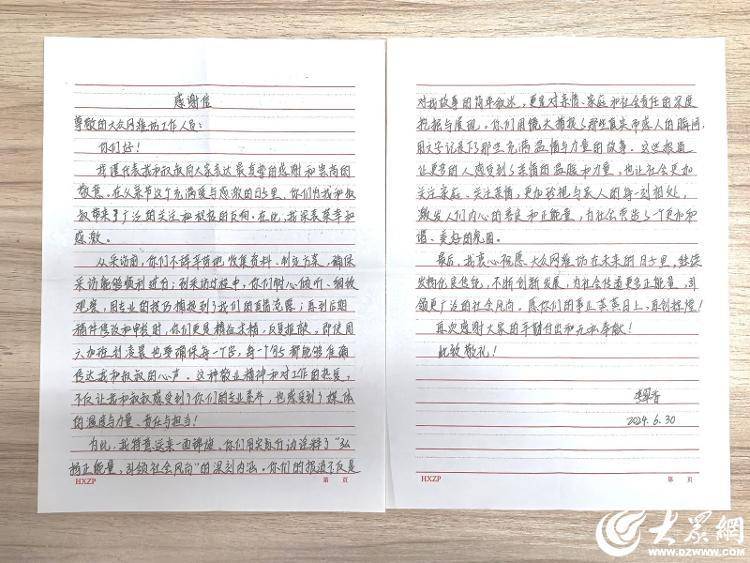 感谢信
尊敬的大众网潍坊工作人员：
你们好！
我谨代表我和叔叔向大家表达最真挚的感谢和崇高的
敬意。在父亲节这个充满爱与感激的日子里，你们为我和叔
叔带来了广泛的关注和积极的反响。在此，我深表荣幸和
感激。
从采访前，你们不辞辛苦地收集资料、制定方案，确保
采访能够顺利进行；到采访过程中，你们耐心倾听、细致
观察，用专业的技巧捕捉到了我们的真情流露；再到后期
稿件修改和审核时，你们更是精益求精，反复推敲，即使周
六加班到凌晨也要确保每一个字，每一个细节都能够准确
传达我和叔叔的心声。这种敬业精神和对工作的热爱，
不仅让我和叔叔感受到了你们的专业素养，也感受到了媒体
的温度与力量、责任与担当！
为此，我特意送来一面锦旗，你们用实际行动诠释了“弘
扬正能量，引领社会风向”的深刻内涵。你们的报道不仅是
HXZP
第 页
对我故事的简单叙述，更是对亲情、家庭和社会责任的深度
挖掘与展现。你们用镜头捕捉了那些真实而感人的瞬间，
用文字记录了那些充满温情与力量的故事。这些报道
让更多的人感受到了亲情的温暖和力量，也让社会更加
关注家庭、关注亲情，更加珍视与家人的每一刻相处，
激发人们内心的善良和正能量，为社会营造了一个更加和
谐、美好的氛围。
最后，我衷心祝愿大众网潍坊在未来的日子里，继续
发扬优良传统，不断创新发展，为社会传递更多正能量，引
领更广泛的社会风向，愿你们的事业蒸蒸日上，再创辉煌！
再次感谢大家的辛勤付出和无私奉献！
此致敬礼！
李翠香
2024.6.30
HXZP
第 页
大眾網
WWW.DZWWW.COM